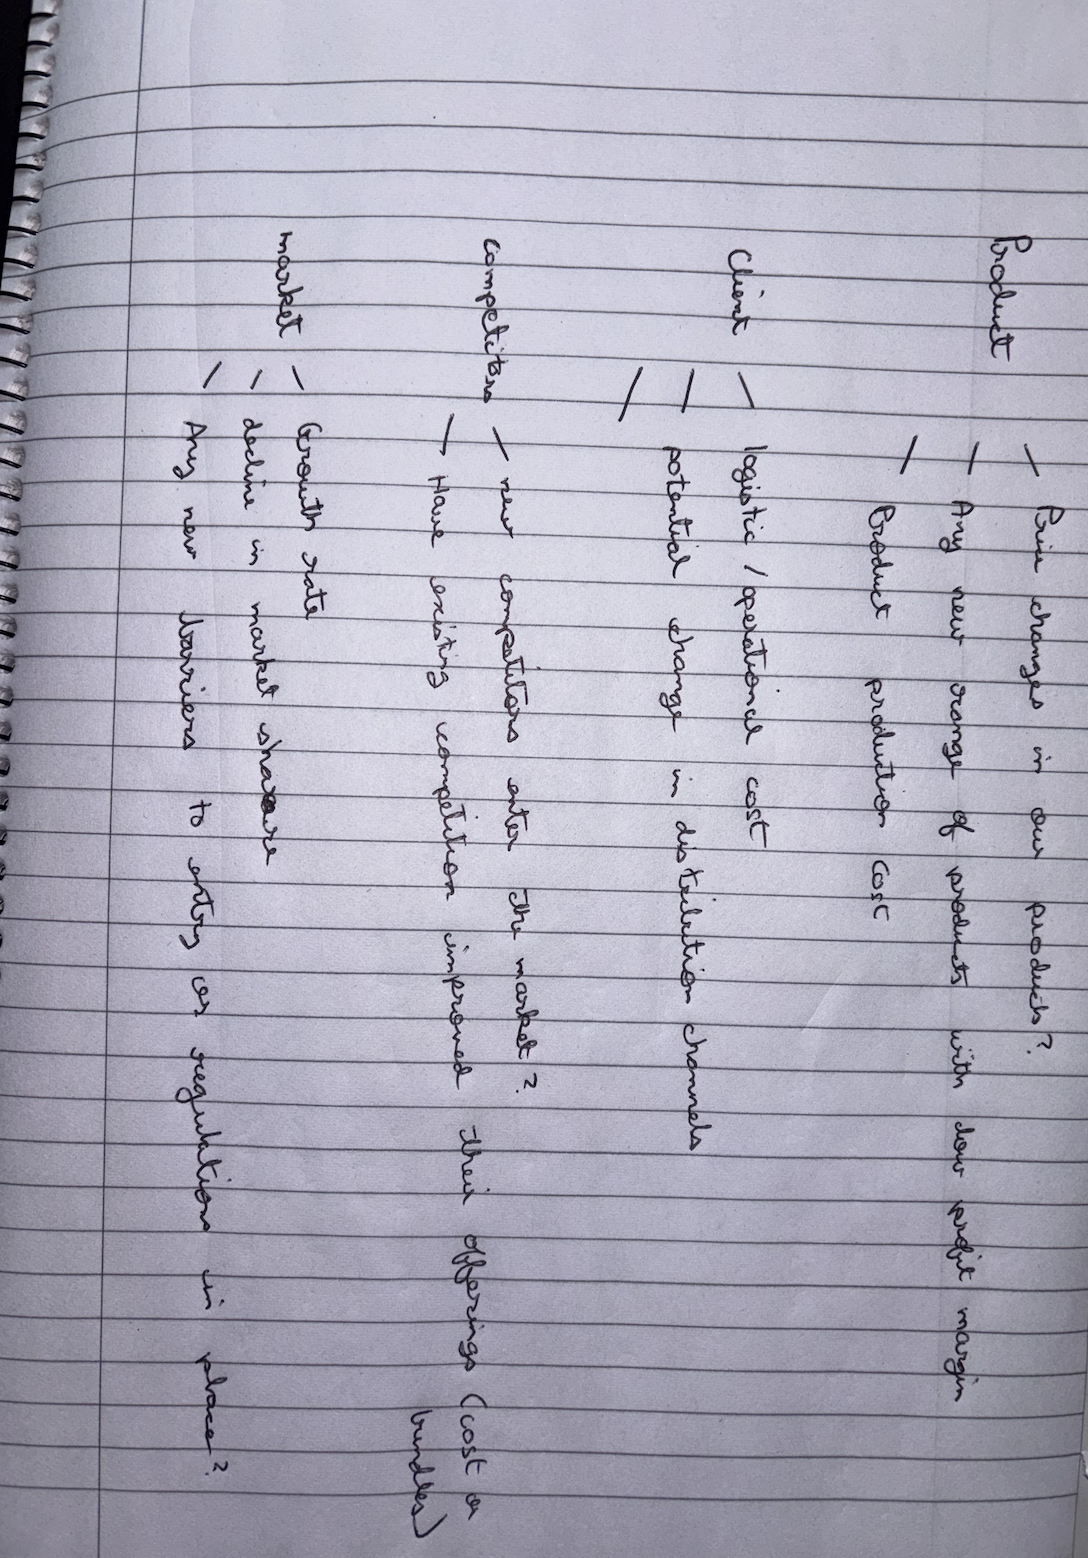 Product
- Price changes in our products?
- Any new range of products with low profit margin
- Product production cost
Client
- logistic / operational cost
- potential change in distribution channels
-
Competitors
- new competitors enter the market?
- Have existing competition improved their offerings (cost or
bundles)
market
- Growth rate
- decline in market share
- Any new barriers to entry or regulations in place?